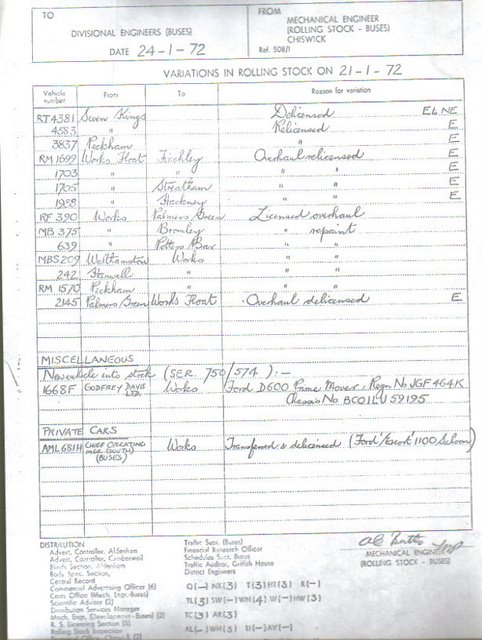 TO
DIVISIONAL ENGINEERS (BUSES)
DATE 24-1-72
FROM
MECHANICAL ENGINEER
(ROLLING STOCK - BUSES)
CHISWICK
Ref. 508/1
VARIATIONS IN ROLLING STOCK ON 21-1-72
Vehicle number From To Reason for variation
RT 4381 Seven Kings Delicensed Eb NE
4583 " Relicensed E
3837 Peckham " E
RM 1699 Works Float Finchley Overhaul relicensed E
1703 " " " " E
1705 " Streatham " " E
1988 " Hackney " " E
RF 390 Works Palmers Green Licensed overhaul
MB 375 " Bromley " repaint
639 " Potters Bar " "
MBS 209 Walthamstow Works " "
242 Hanwell " " "
RM 1570 Peckham " " "
2145 Palmers Green Works Float Overhaul delicensed E
MISCELLANEOUS
New vehicle into stock (SER. 750/574) :-
1668F GODFREY DAVIS LTD. Works Ford D600 Prime Mover. Regn No JGF 464K
Chassis No BCO1LU 59195
PRIVATE CARS
AML 681H CHIEF OPERATING MGR. (SOUTH) (BUSES) Works Transferred & delicensed (Ford 'Escort' 1100 Saloon)
MECHANICAL ENGINEER
(ROLLING STOCK - BUSES)
DISTRIBUTION
Advert. Controller, Aldenham
Advert. Controller, Camberwell
Birth Section, Aldenham
Body Spec. Section,
Central Record
Commercial Advertising Officer (6)
Costs Office (Mech. Engr-Buses)
Scientific Adviser (2)
Distribution Services Manager
Mech. Engr. (Development - Buses) (2)
R. S. Licensing Section (3)
Rolling Stock Inspection
Traffic Supt. (Buses)
Financial Research Officer
Schedules Supt. Buses
Traffic Auditor, Griffith House
District Engineers
Q(-) NX(3) T(3) HT(3) R(-)
TL(3) SW(-) WN(4) W(-) HW(3)
TC(3) AR(3)
AL(-) WH(3) U(-) AV(-)